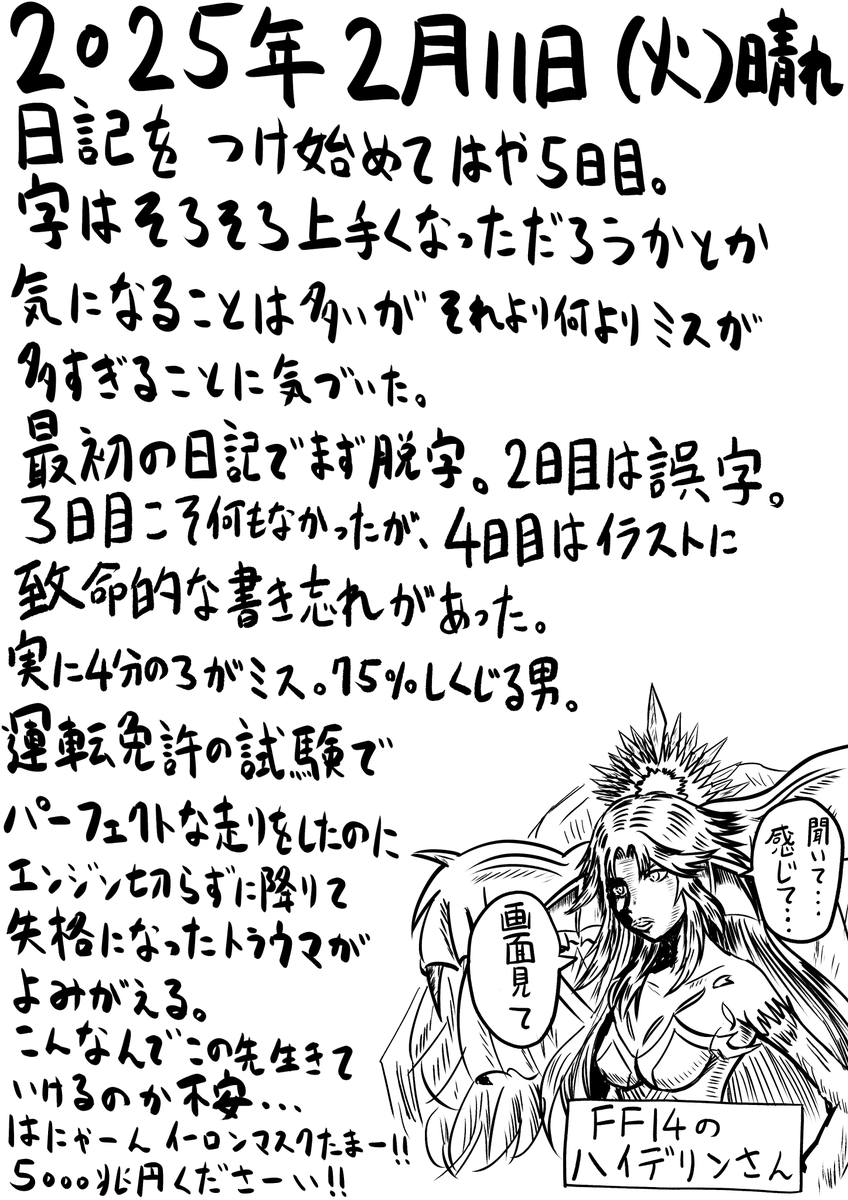 2025年2月11日(火)晴れ
日記をつけ始めてはや5日目。
字はそろそろ上手くなっただろうかとか
気になることは多いがそれより何よりミスが
多すぎることに気づいた。
最初の日記でまず脱字。2日目は誤字。
3日目こそ何もなかったが、4日目はイラストに
致命的な書き忘れがあった。
実に4分の3がミス。75%しくじる男。
運転免許の試験で
パーフェクトな走りをしたのに
エンジン切らずに降りて
失格になったトラウマが
よみがえる。
こんなんでこの先生きて
いけるのか不安...
はにゃーん イーロンマスクたまー!!
5000兆円くださーい!!
聞いて...
感じて...
画面見て
FF14の
ハイデリンさん